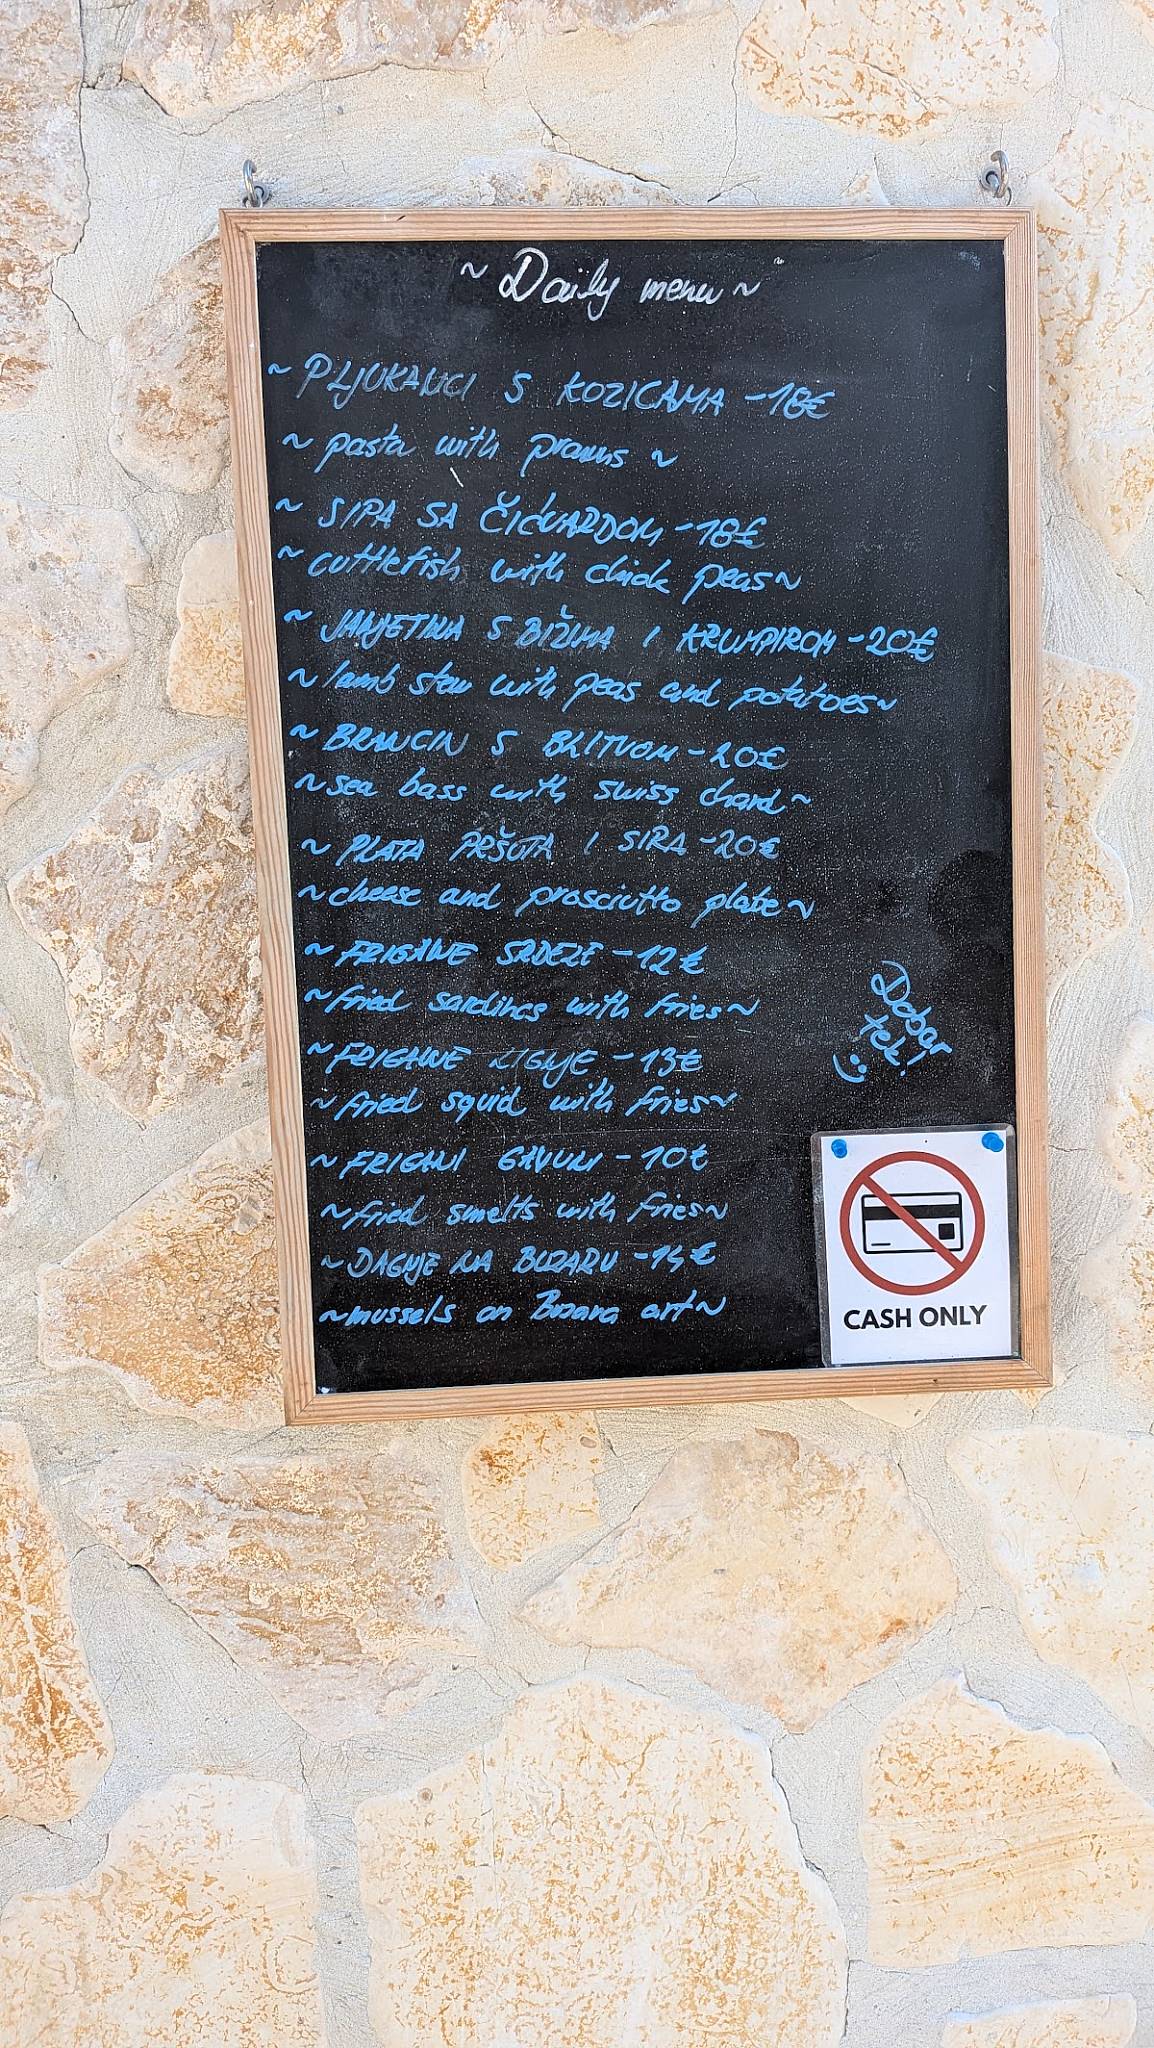 ~ Daily menu ~
~ PLJUKANCI S KOZICAMA - 18€
~ pasta with prawns ~
~ SIPA SA ČIĆVARDOM - 18€
~ cuttlefish with chick peas ~
~ JANJETINA S BIŽIMA I KRUMPIROM - 20€
~ lamb stew with peas and potatoes ~
~ BRANCIN S BLITVOM - 20€
~ sea bass with swiss chard ~
~ PLATA PRŠUTA I SIRA - 20€
~ cheese and prosciutto plate ~
~ FRIGANE SRDELE - 12€
~ fried sardines with fries ~
~ FRIGANE LIGNJE - 13€
~ fried squid with fries ~
~ FRIGANI GAVUNI - 10€
~ fried smelts with fries ~
~ DAGNJE NA BUZARU - 14€
~ mussels on Buzara art ~
Dobar
tek!
:)
CASH ONLY